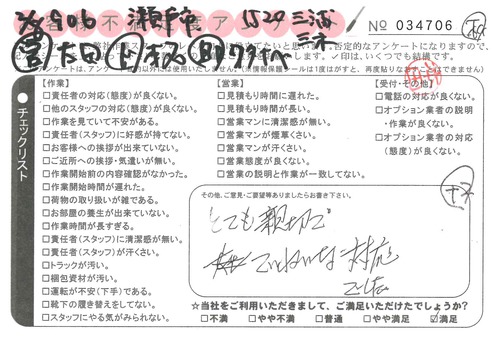 お客様不満足度アンケート
No 034706
906 瀬戸市 1/24 三浦
三木
営 太田
否定的なアンケートになりますので、
✓印は、いくつでも結構です。
チェックリスト
【作業】
□責任者の対応(態度)が良くない。
□他のスタッフの対応(態度)が良くない。
□作業を見ていて不安がある。
□責任者(スタッフ)に好感が持てない。
□お客様への挨拶が出来ていない。
□ご近所への挨拶・気遣いが無い。
□作業開始前の内容確認がなかった。
□作業開始時間が遅れた。
□荷物の取り扱いが雑である。
□お部屋の養生が出来ていない。
□作業時間が長すぎる。
□責任者(スタッフ)に清潔感が無い。
□責任者(スタッフ)が汗くさい。
□トラックが汚い。
□梱包資材が汚い。
□運転が不安(下手)である。
□靴下の履き替えをしてない。
□スタッフにやる気がみられない。
【営業】
□見積もり時間に遅れた。
□見積もり時間が長い。
□営業マンに清潔感が無い。
□営業マンが煙草くさい。
□営業マンが汗くさい。
□営業態度が良くない。
□営業の説明と作業が一致してない。
【受付・その他】
□電話の対応が良くない。
□オプション業者の説明
・作業が良くない。
□オプション業者の対応
(態度)が良くない。
その他、ご意見・ご要望等ありましたらお書き下さい。
とても親切で
ていねいな対応
でした
☆当社をご利用いただきまして、ご満足いただけたでしょうか?
□不満 □やや不満 □普通 □やや満足 ☑満足